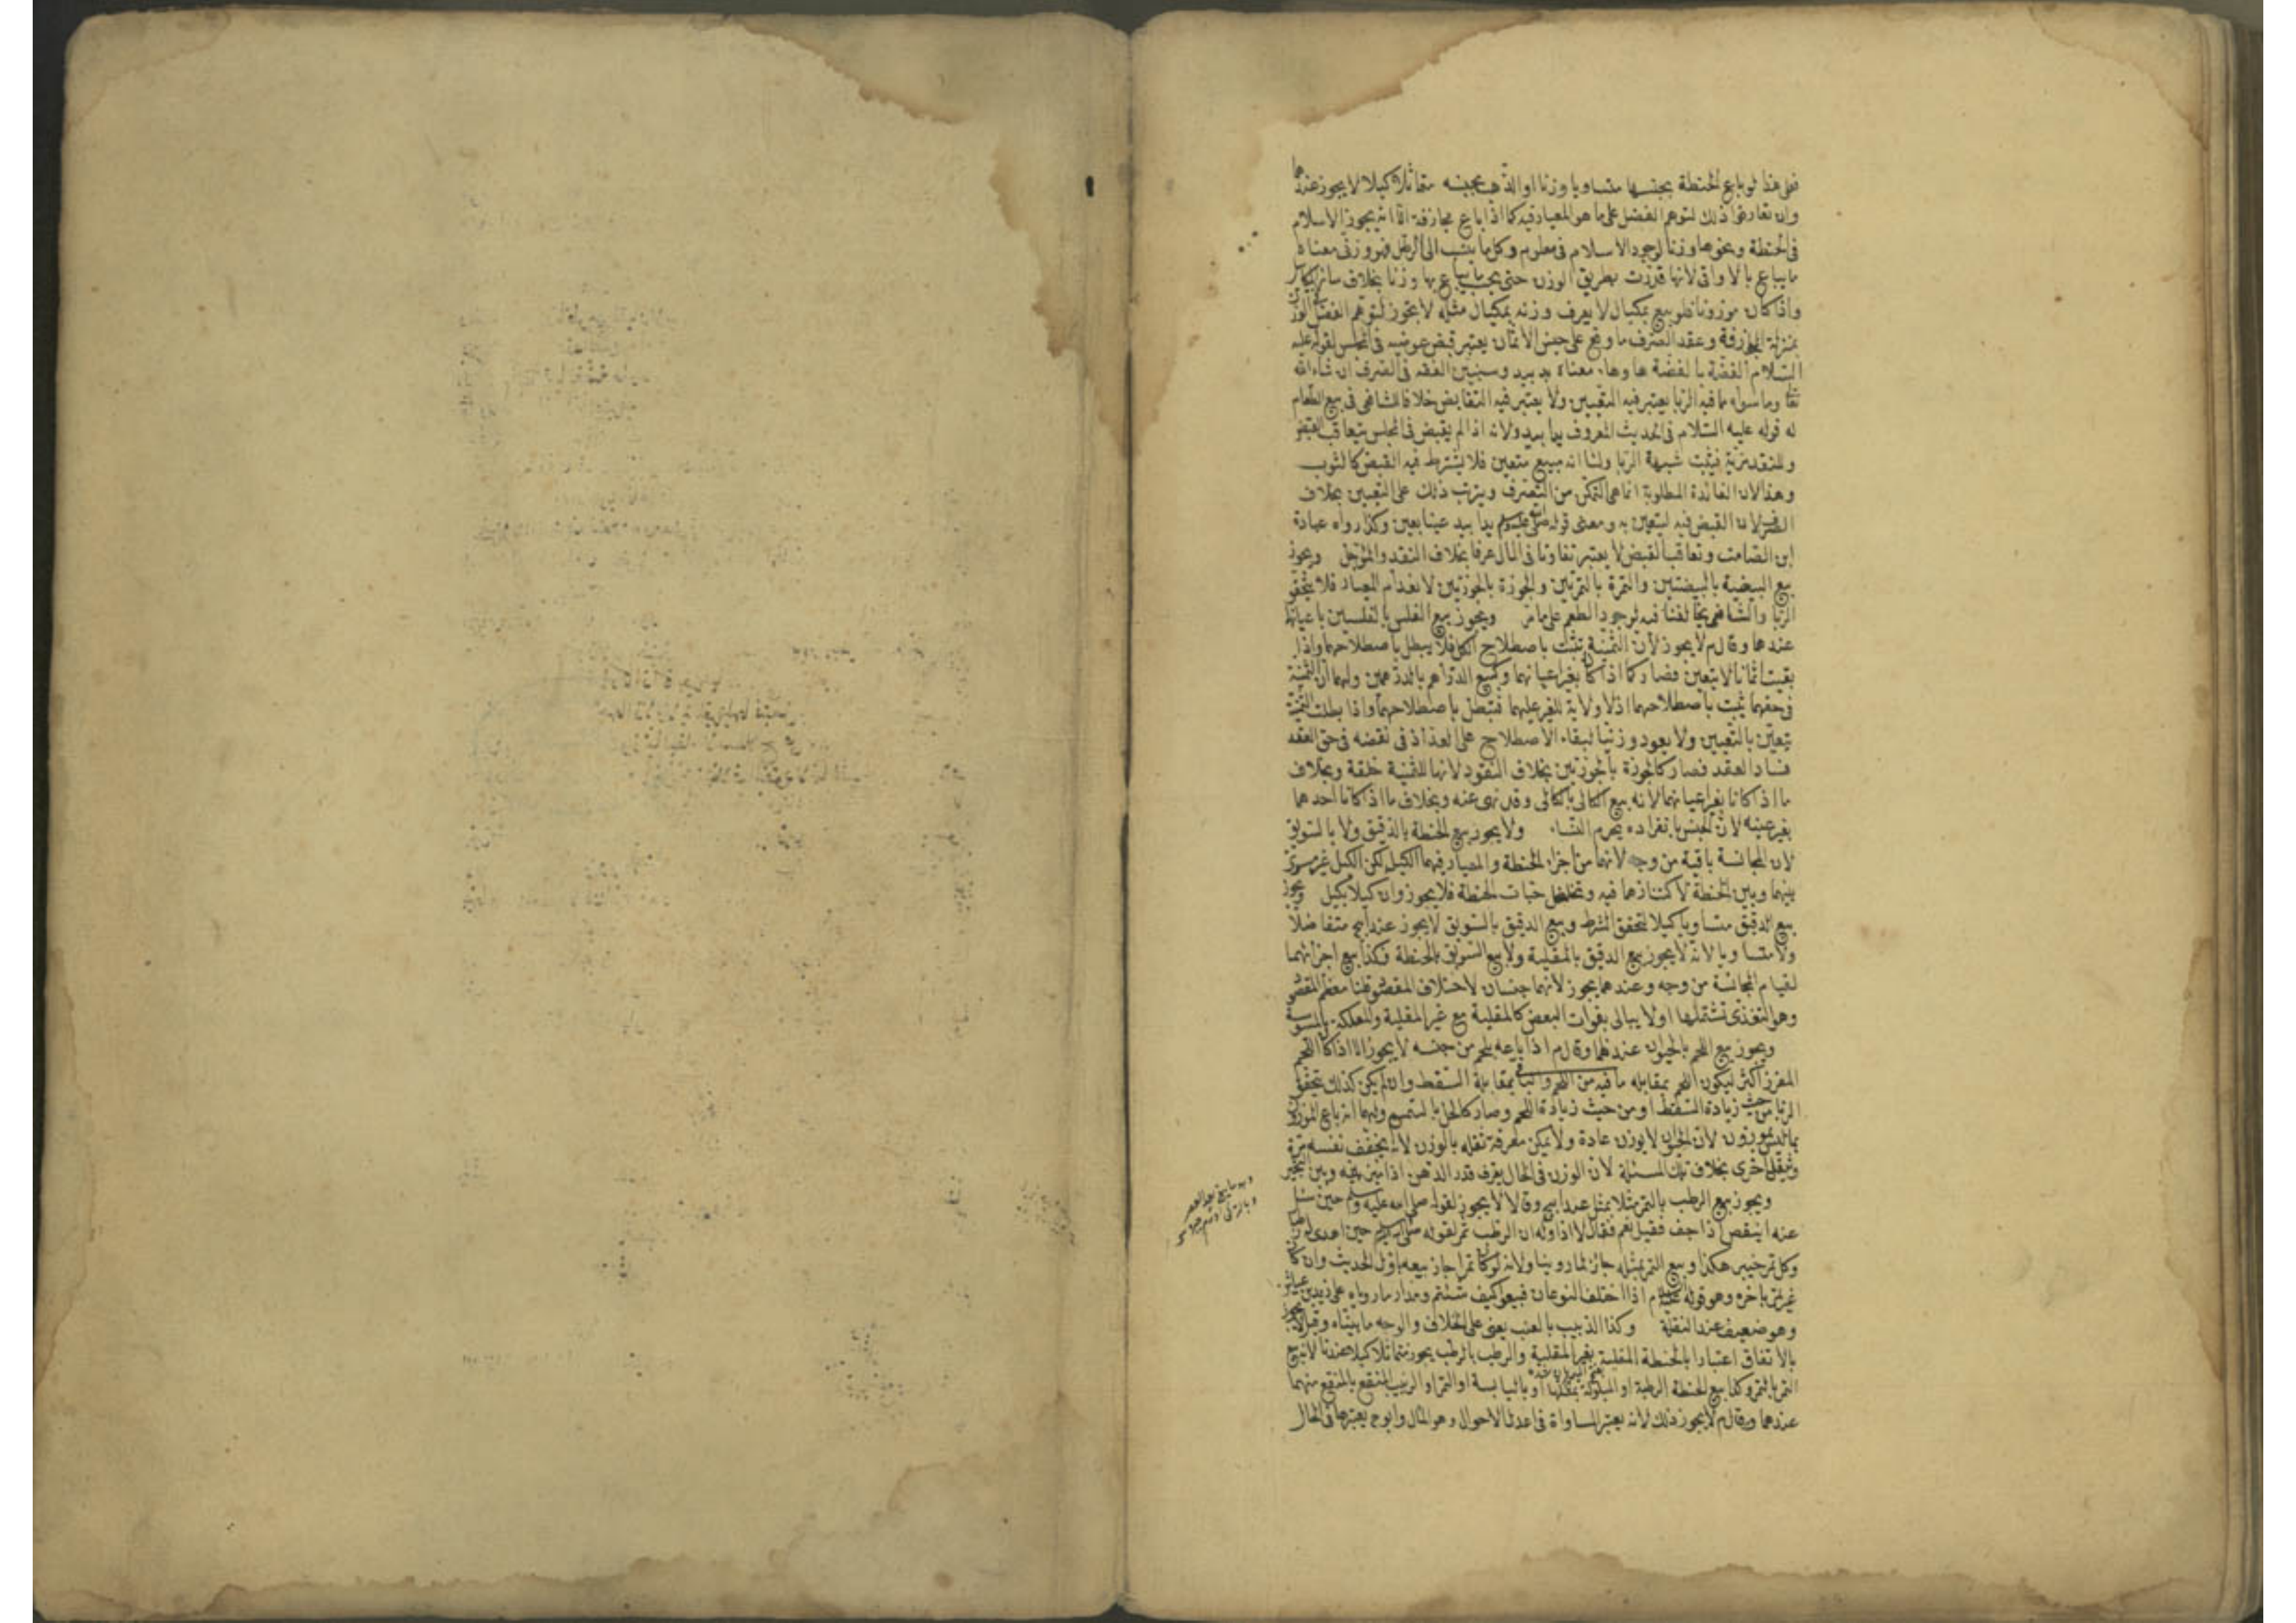 فعلى هذا لو باع الحنطة بجنسها متساويا وزنا او الذهب بجنسه متماثلا كيلا لا يجوز عندهما
وان تعارفوا ذلك لتوهم الفضل على ما هو المعيار فيه كما اذا باع مجازفة الا انه يجوز الاسلام
فى الحنطة ونحوها وزنا لوجود الاسلام فى معلوم وكل ما ينسب الى الرطل فهو وزنى معناه
ما يباع بالاواقى لانها قدرت بطريق الوزن حتى يحتسب ما يباع بها وزنا بخلاف سائر المكاييل
واذا كان موزونا فلو بيع بمكيال لا يعرف وزنه بمكيال مثله لا يجوز لتوهم الفضل فى الوزن
بمنزلة المجازفة وعقد الصرف ما وقع على جنس الاثمان يعتبر قبض عوضيه فى المجلس لقوله عليه
السلام الفضة بالفضة هاء وهاء معناه يد بيد وسنبين الفقه فى الصرف ان شاء الله
تعا وما سواه مما فيه الربا يعتبر فيه التعيين ولا يعتبر فيه التقابض خلافا للشافعى فى بيع الطعام
له قوله عليه السلام فى الحديث المعروف يدا بيد ولانه اذا لم يقبض فى المجلس يتعاقب القبض
وللنقد مزية فيثبت شبهة الربا ولنا انه مبيع متعين فلا يشترط فيه القبض كالثوب
وهذا لان الفائدة المطلوبة انما هى التمكن من التصرف ويترتب ذلك على التعيين بخلاف
الصرف لان القبض فيه ليتعين به ومعنى قوله صلى الله عليه وسلم يدا بيد عينا بعين وكذا رواه عبادة
ابن الصامت وتعاقب القبض لا يعتبر تفاوتا فى المال عرفا بخلاف النقد والمؤجل ويجوز
بيع البيضة بالبيضتين والتمرة بالتمرتين والجوزة بالجوزتين لانعدام المعيار فلا يتحقق
الربا والشافعى يخالفنا فيه لوجود الطعم على ما مر ويجوز بيع الفلس بالفلسين باعيانها
عندهما وقال م لا يجوز لان الثمنية تثبت باصطلاح الكل فلا يبطل باصطلاحهما واذا
بقيت اثمانا لا يتعين فصار كما اذا كانا بغير اعيانهما وكبيع الدرهم بالدرهمين ولهما ان الثمنية
فى حقهما تثبت باصطلاحهما اذ لا ولاية للغير عليهما فتبطل باصطلاحهما واذا بطلت الثمنية
يتعين بالتعيين ولا يعود وزنيا لبقاء الاصطلاح على العد اذ فى نقضه فى حق العقد
فساد العقد فصار كالجوزة بالجوزتين بخلاف النقود لانها للثمنية خلقة وبخلاف
ما اذا كانا بغير اعيانهما لانه بيع الكالى بالكالى وقد نهى عنه وبخلاف ما اذا كانا احدهما
بغير عينه لان الجنس بانفراده يحرم النساء ولا يجوز بيع الحنطة بالدقيق ولا بالسويق
لان المجانسة باقية من وجه لانهما من اجزاء الحنطة والمعيار فيهما الكيل لكن الكيل غير مسو
بينهما وبين الحنطة لاكتنازهما فيه وتخلخل حبات الحنطة فلا يجوز وان كيلا بكيل ويجوز
بيع الدقيق متساويا كيلا لتحقق الشرط وبيع الدقيق بالسويق لا يجوز عند ابى ح متفاضلا
ولا متساويا لانه لا يجوز بيع الدقيق بالمقلية ولا بيع السويق بالحنطة فكذا بيع اجزائهما
لقيام المجانسة من وجه وعندهما يجوز لانهما جنسان لاختلاف المقصود قلنا معظم المقصود
وهو التغذى تشتملها اولا يبالى بفوات البعض كالمقلية مع غير المقلية والعلكة بالمسوسة
ويجوز بيع اللحم بالحيوان عندهما وقال م اذا باعه بلحم من جنسه لا يجوز الا اذا كان اللحم
المفرز اكثر ليكون اللحم بمقابلة ما فيه من اللحم والباقى بمقابلة السقط وان لم يكن كذلك يتحقق
الربا من حيث زيادة السقط او من حيث زيادة اللحم وصار كالحل بالسمسم ولهما انه باع الموزون
بما ليس بموزون لان الحيوان لا يوزن عادة ولا يمكن معرفة ثقله بالوزن لانه يخفف نفسه مرة
ويثقل اخرى بخلاف تلك المسئلة لان الوزن فى الحال يعرف قدر الدهن اذا ميز بينه وبين الثجير
ويجوز بيع الرطب بالتمر مثلا بمثل عند ابى ح وقالا لا يجوز لقوله صلى الله عليه وسلم حين سئل
عنه اينقص اذا جف فقيل نعم فقال لا اذا وله ان الرطب تمر لقوله صلى الله عليه وسلم حين اهدى له رطبا
وكل تمر خيبر هكذا وبيع التمر بمثله جائز لما روينا ولانه لو كان تمرا جاز بيعه باول الحديث وان كان
غير تمر باخره وهو قوله عليه السلام اذا اختلف النوعان فبيعوا كيف شئتم ومدار ما روياه على زيد بن عياش
وهو ضعيف عند النقلة وكذا الزبيب بالعنب يعنى على الخلاف والوجه ما بيناه وقيل لا يجوز
بالاتفاق اعتبارا بالحنطة المقلية بغير المقلية والرطب بالرطب يجوز متماثلا كيلا عندنا لانه بيع
التمر بالتمر وكذا بيع الحنطة الرطبة او المبلولة بمثلها او باليابسة او التمر او الزبيب المنقع بالمنقع منهما
عندهما وقال م لا يجوز ذلك لانه يعتبر المساواة فى اعدل الاحوال وهو المال وابو ح يعتبرها فى الحال